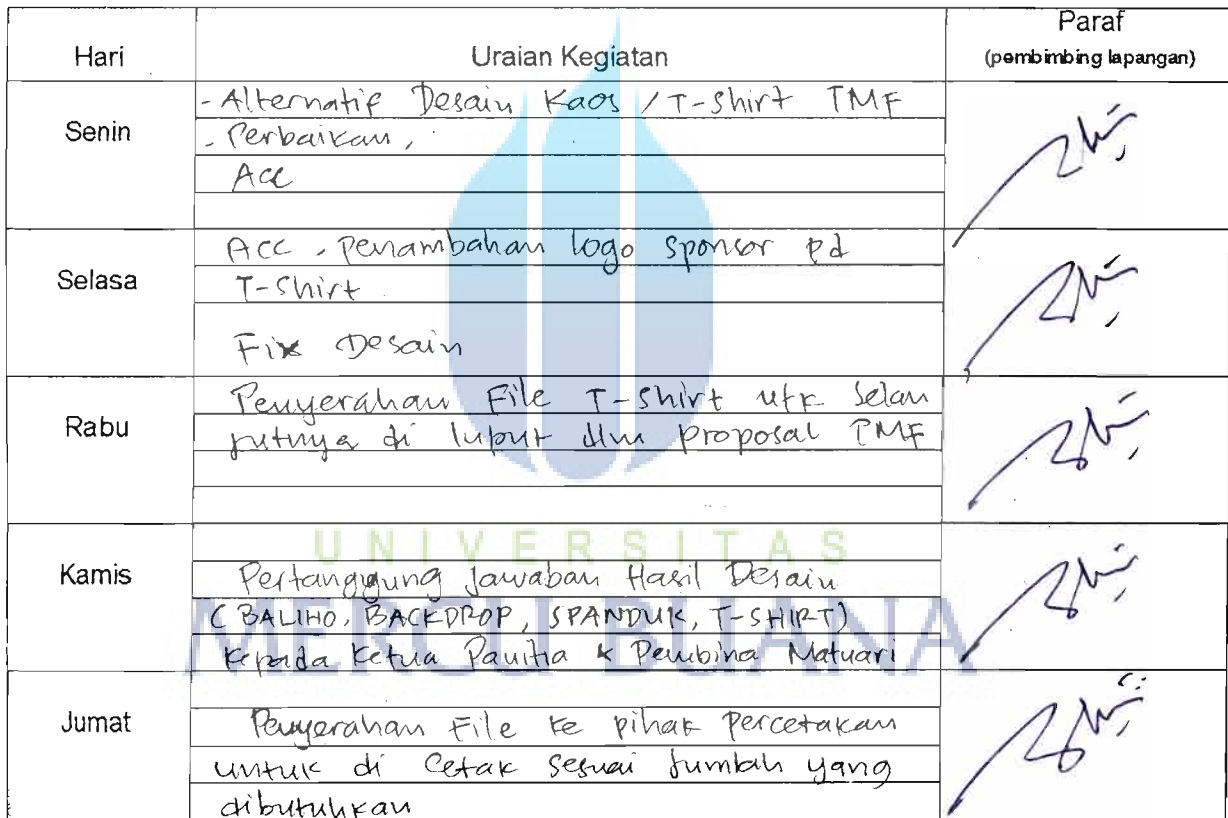 Hari Uraian Kegiatan Paraf
(pembimbing lapangan)
Senin
- Alternatif Desain Kaos / T-Shirt TMF
- Perbaikan,
Acc
Selasa
Acc, Penambahan logo sponsor pd
T-Shirt
Fix Desain
Rabu
Penyerahan File T-Shirt utk Selan
jutnya di input dlm proposal TMF
UNIVERSITAS
MERCU BUANA
Kamis
Pertanggung jawaban Hasil Desain
(BALIHO, BACKDROP, SPANDUK, T-SHIRT)
Kepada Ketua Panitia & Pembina Matuari
Jumat
Penyerahan File ke pihak percetakan
untuk di Cetak sesuai Jumlah yang
dibutuhkan